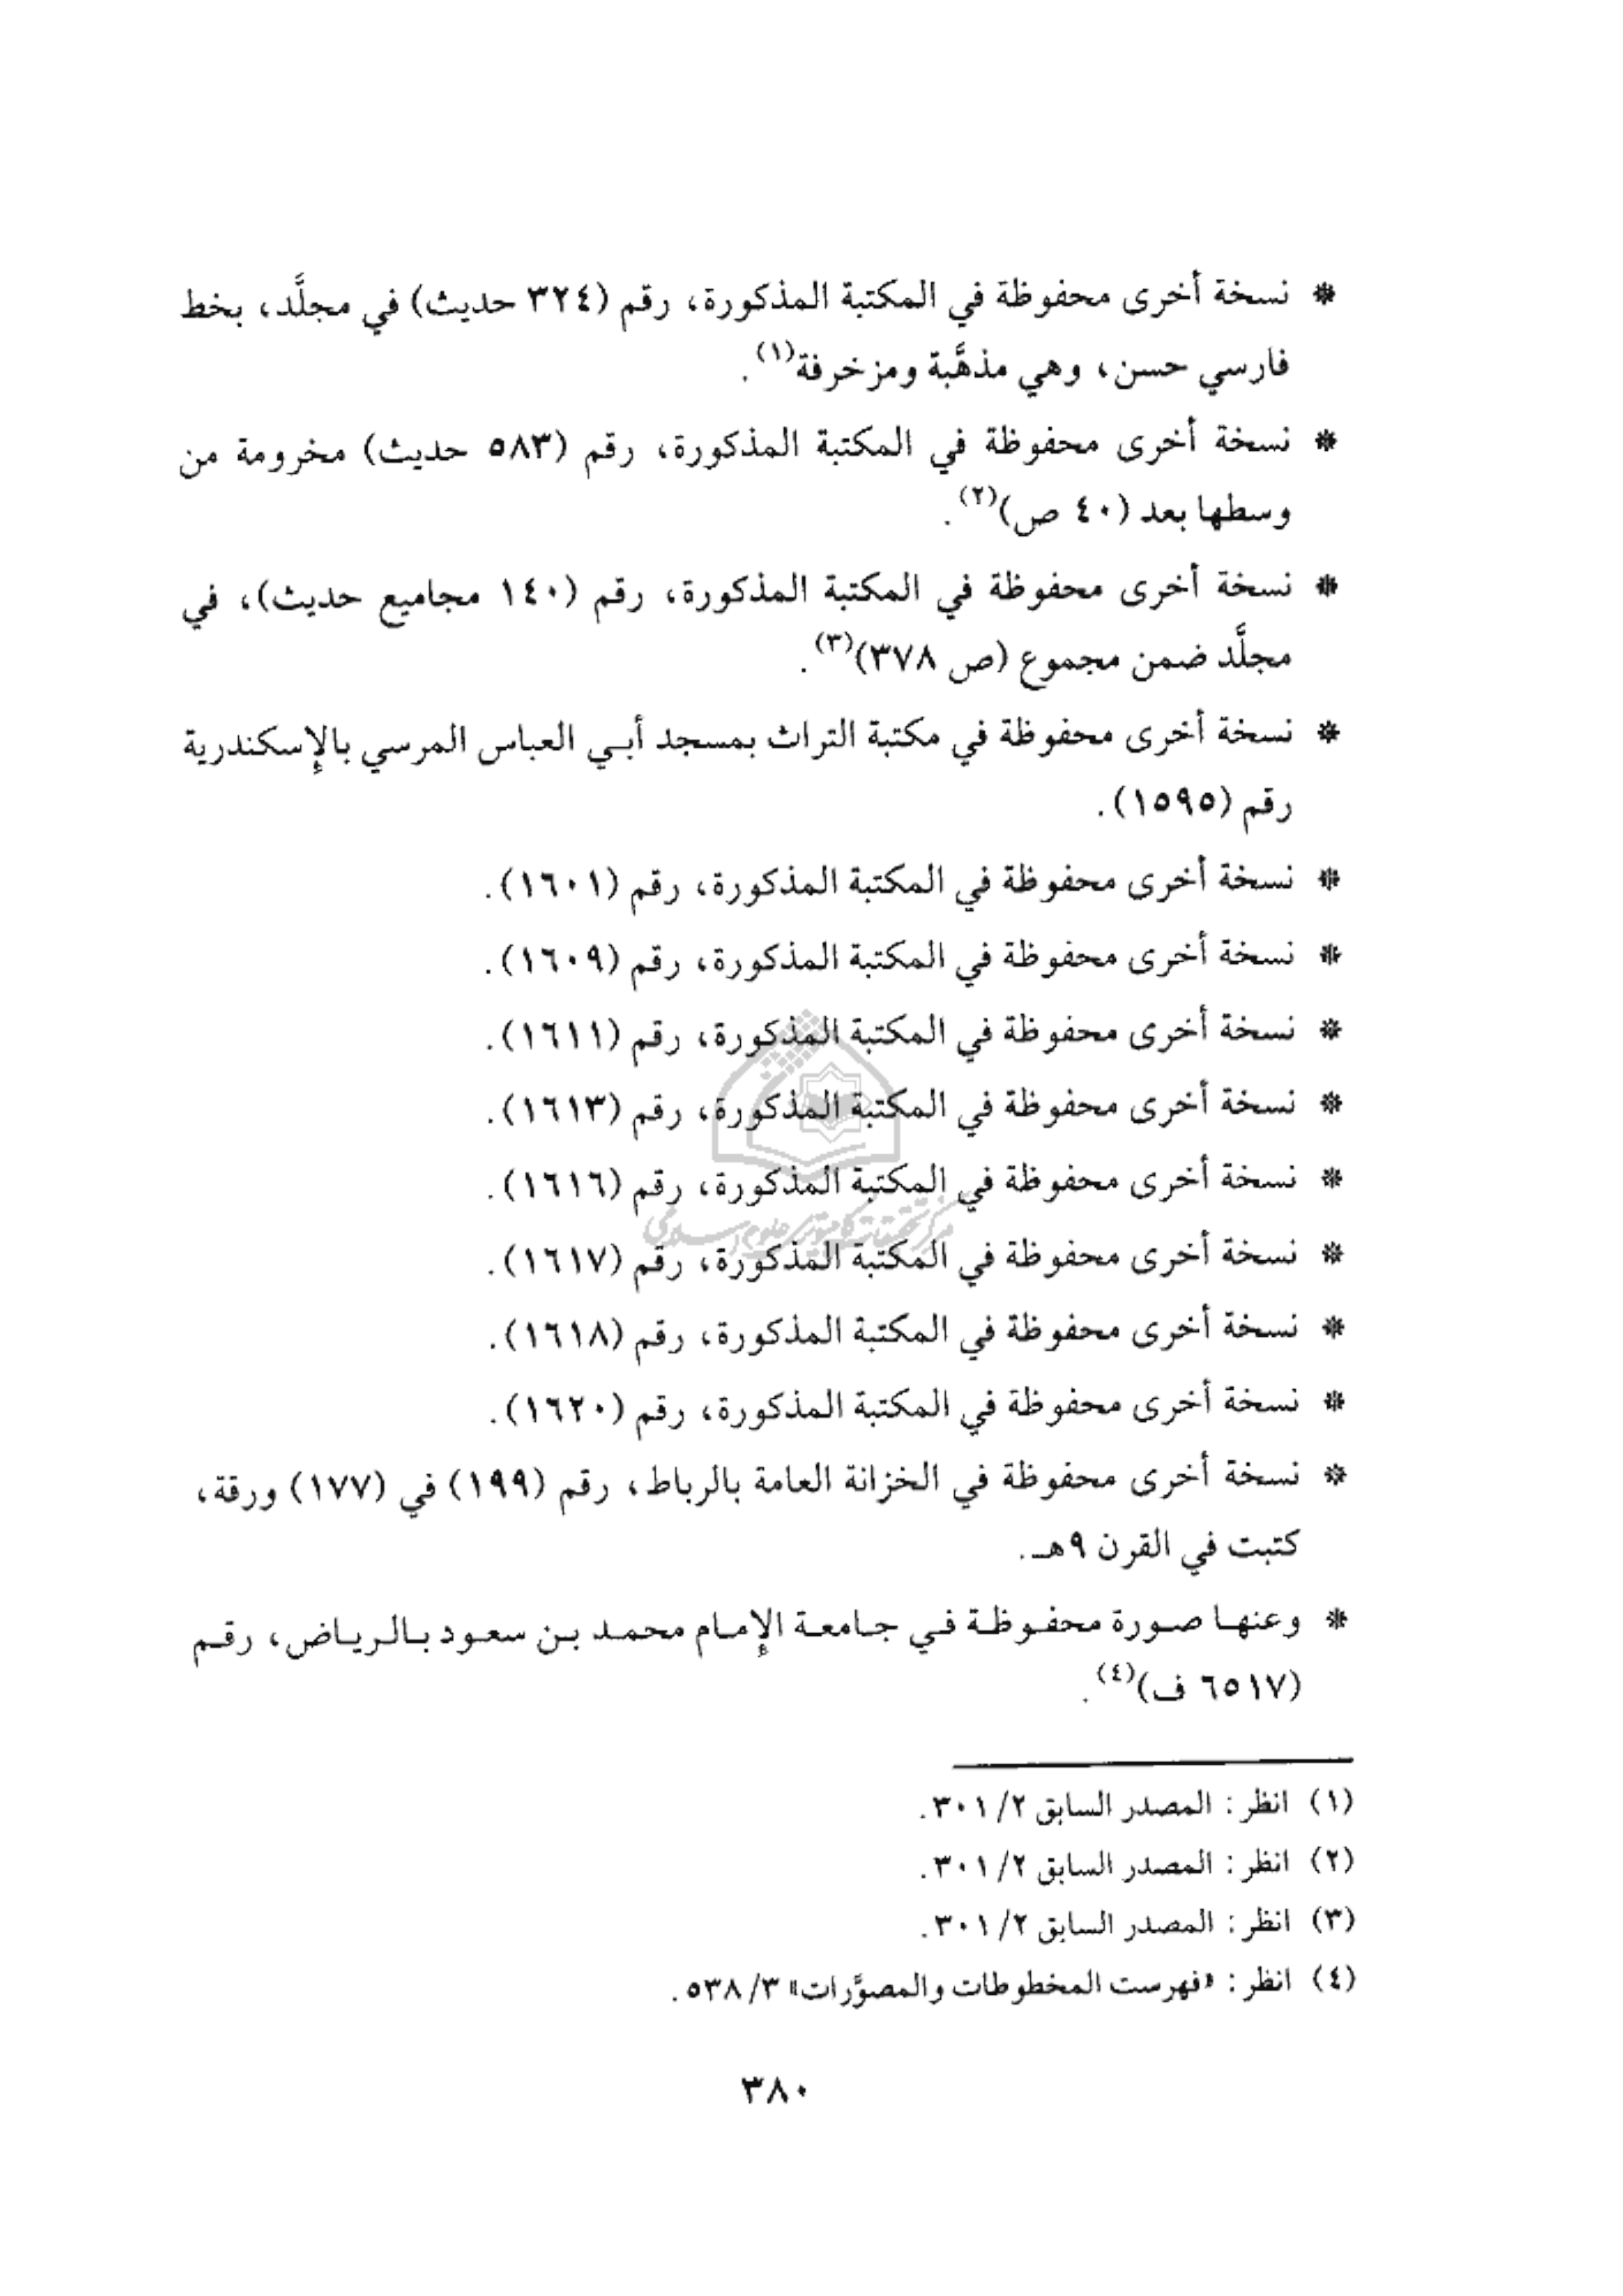 * نسخة أخرى محفوظة في المكتبة المذكورة، رقم (٣٢٤ حديث) في مجلَّد، بخط
فارسي حسن، وهي مذهَّبة ومزخرفة(١).
* نسخة أخرى محفوظة في المكتبة المذكورة، رقم (٥٨٣ حديث) مخرومة من
وسطها بعد (٤٠ ص)(٢).
* نسخة أخرى محفوظة في المكتبة المذكورة، رقم (١٤٠ مجاميع حديث)، في
مجلَّد ضمن مجموع (ص ٣٧٨)(٣).
* نسخة أخرى محفوظة في مكتبة التراث بمسجد أبـي العباس المرسي بالإسكندرية
رقم (١٥٩٥).
* نسخة أخرى محفوظة في المكتبة المذكورة، رقم (١٦٠١).
* نسخة أخرى محفوظة في المكتبة المذكورة، رقم (١٦٠٩).
* نسخة أخرى محفوظة في المكتبة المذكورة، رقم (١٦١١).
* نسخة أخرى محفوظة في المكتبة المذكورة، رقم (١٦١٣).
* نسخة أخرى محفوظة في المكتبة المذكورة، رقم (١٦١٦).
مرکز تحقیقات کامپیوتری علوم اسلامی
* نسخة أخرى محفوظة في المكتبة المذكورة، رقم (١٦١٧).
* نسخة أخرى محفوظة في المكتبة المذكورة، رقم (١٦١٨).
* نسخة أخرى محفوظة في المكتبة المذكورة، رقم (١٦٢٠).
* نسخة أخرى محفوظة في الخزانة العامة بالرباط، رقم (١٩٩) في (١٧٧) ورقة،
كتبت في القرن ٩هـ.
* وعنهـا صـورة محفـوظـة فـي جـامعـة الإمـام محمـد بـن سعـود بـالـريـاض، رقـم
(٦٥١٧ ف)(٤).
(١) انظر: المصدر السابق ٢/ ٣٠١.
(٢) انظر: المصدر السابق ٢/ ٣٠١.
(٣) انظر: المصدر السابق ٢/ ٣٠١.
(٤) انظر: «فهرست المخطوطات والمصوَّرات» ٣/ ٥٣٨.
٣٨٠